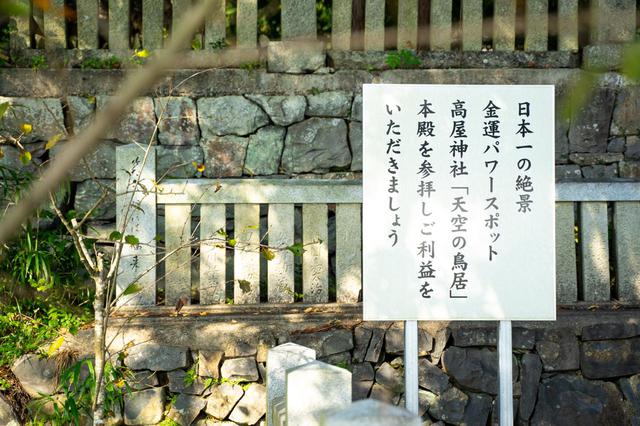 日本一の絶景
金運パワースポット
高屋神社「天空の鳥居」
本殿を参拝しご利益を
いただきましょう